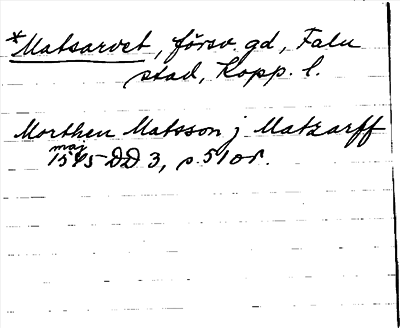 *Matsarvet, försv. gd, Falu
stad, Kopp. l.
Morthen Matsson j Matzarff
maj
1545 DD 3, s. 51 or.